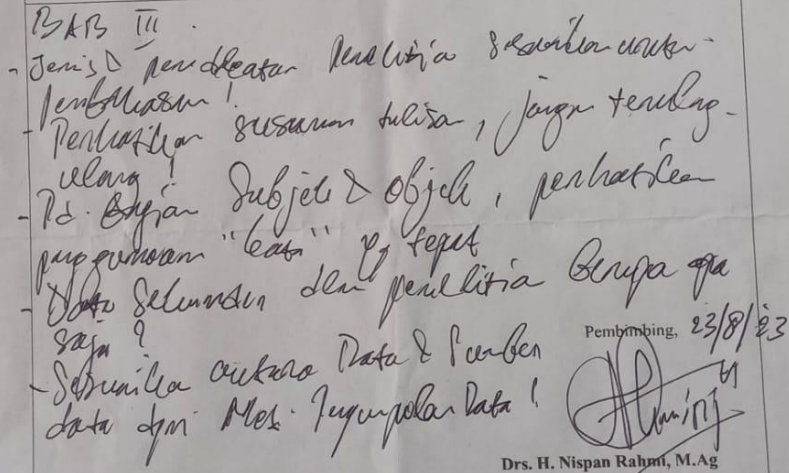 BAB III
- Jenis & pendekatan penelitia sesuaikan untk
pembahasan !
- Perhatikan susunan tulisan, jangn terulang-
ulang !
- Pd. Bagian Subjek & objek, perhatikan
penggunaan "kata" yg tepat
- Data Sekunder dlm penelitia berupa apa
saja ?
- Sesuaika antara Data & Sumber
data dgn Met. Pengumpulan Data !
Pembimbing, 23/8/23
Drs. H. Nispan Rahmi, M.Ag